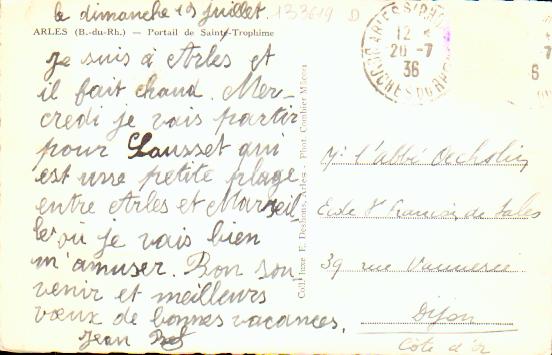 le dimanche 19 juillet. 133619 D
ARLES (B.-du-Rh.) — Portail de Sainte-Trophime
je suis à Arles et
il fait chaud. Mer-
credi je vais partir
pour Sausset qui
est une petite plage
entre Arles et Marseil
le où je vais bien
m'amuser. Bon sou
venir et meilleurs
vœux de bonnes vacances.
Jean
Coll. luxe E. Arles - Phot. Combier Mâcon
ARLES S/RHONE
12
20-7
36
BOUCHES DU RHONE
7
6
Mr l'abbé
Ecole St François de Sales
39 rue Vannerie
Dijon
Côte d'Or